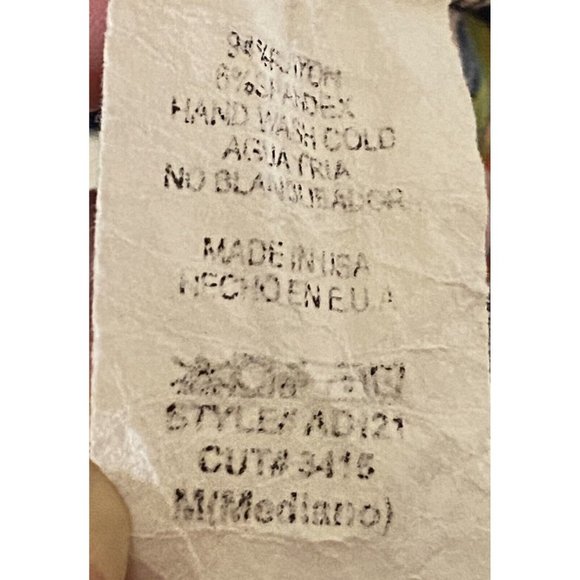 94% NYLON
6% SPANDEX
HAND WASH COLD
AGUA FRIA
NO BLANQUEADOR
MADE IN USA
HECHO EN E.U.A
STYLE# AD121
CUT# 3415
M(Mediano)